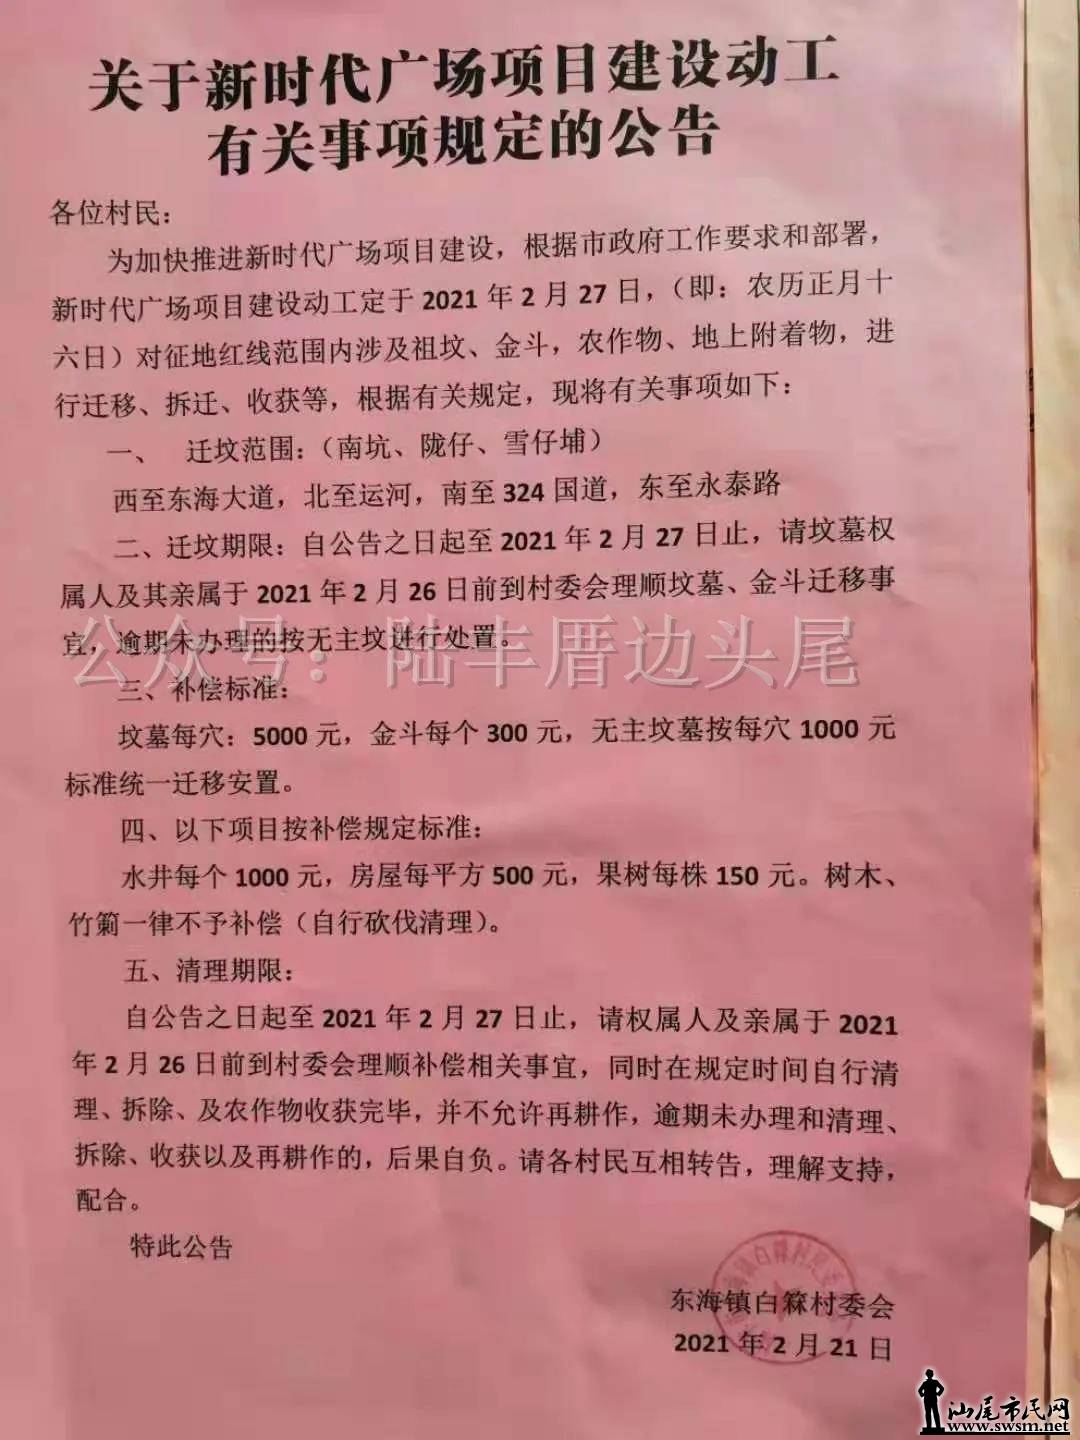 关于新时代广场项目建设动工
有关事项规定的公告
各位村民：
为加快推进新时代广场项目建设，根据市政府工作要求和部署，
新时代广场项目建设动工定于 2021 年 2 月 27 日，（即：农历正月十
六日）对征地红线范围内涉及祖坟、金斗，农作物、地上附着物，进
行迁移、拆迁、收获等，根据有关规定，现将有关事项如下：
一、 迁坟范围：（南坑、陇仔、雪仔埔）
西至东海大道，北至运河，南至 324 国道，东至永泰路
二、迁坟期限：自公告之日起至 2021 年 2 月 27 日止，请坟墓权
属人及其亲属于 2021 年 2 月 26 日前到村委会理顺坟墓、金斗迁移事
宜，逾期未办理的按无主坟进行处置。
公众号：陆丰厝边头尾
三、补偿标准：
坟墓每穴：5000 元，金斗每个 300 元，无主坟墓按每穴 1000 元
标准统一迁移安置。
四、以下项目按补偿规定标准：
水井每个 1000 元，房屋每平方 500 元，果树每株 150 元。树木、
竹䈬一律不予补偿（自行砍伐清理）。
五、清理期限：
自公告之日起至 2021 年 2 月 27 日止，请权属人及亲属于 2021
年 2 月 26 日前到村委会理顺补偿相关事宜，同时在规定时间自行清
理、拆除、及农作物收获完毕，并不允许再耕作，逾期未办理和清理、
拆除、收获以及再耕作的，后果自负。请各村民互相转告，理解支持，
配合。
特此公告
东海镇白箖村委会
2021 年 2 月 21 日
汕尾市民网
www.swsm.net